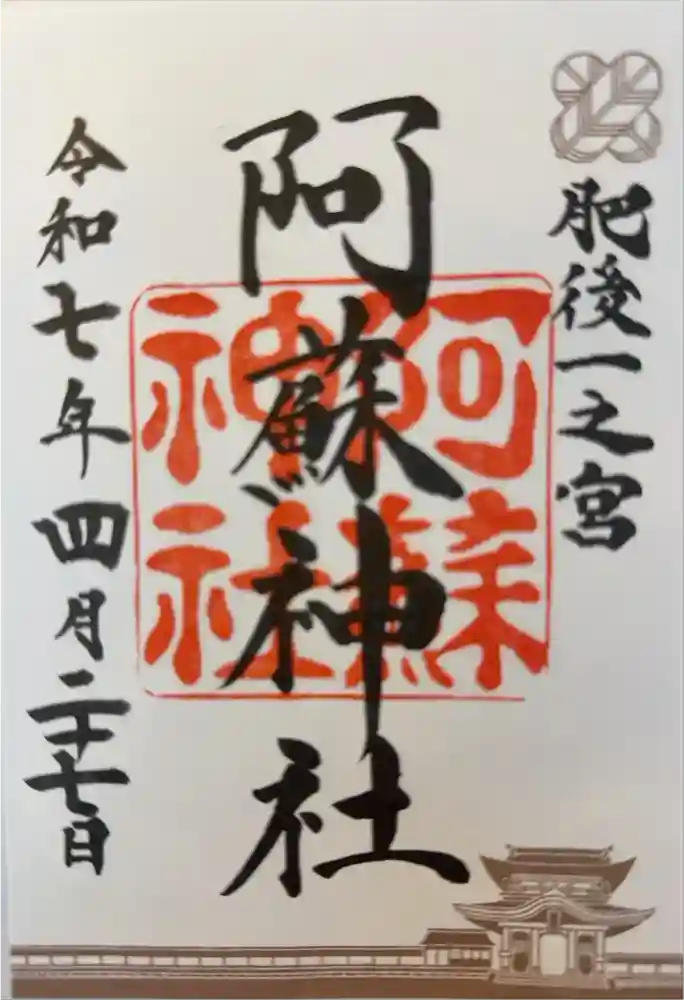 肥後一之宮
阿蘇神社
阿蘇
神社
令和七年四月二十七日